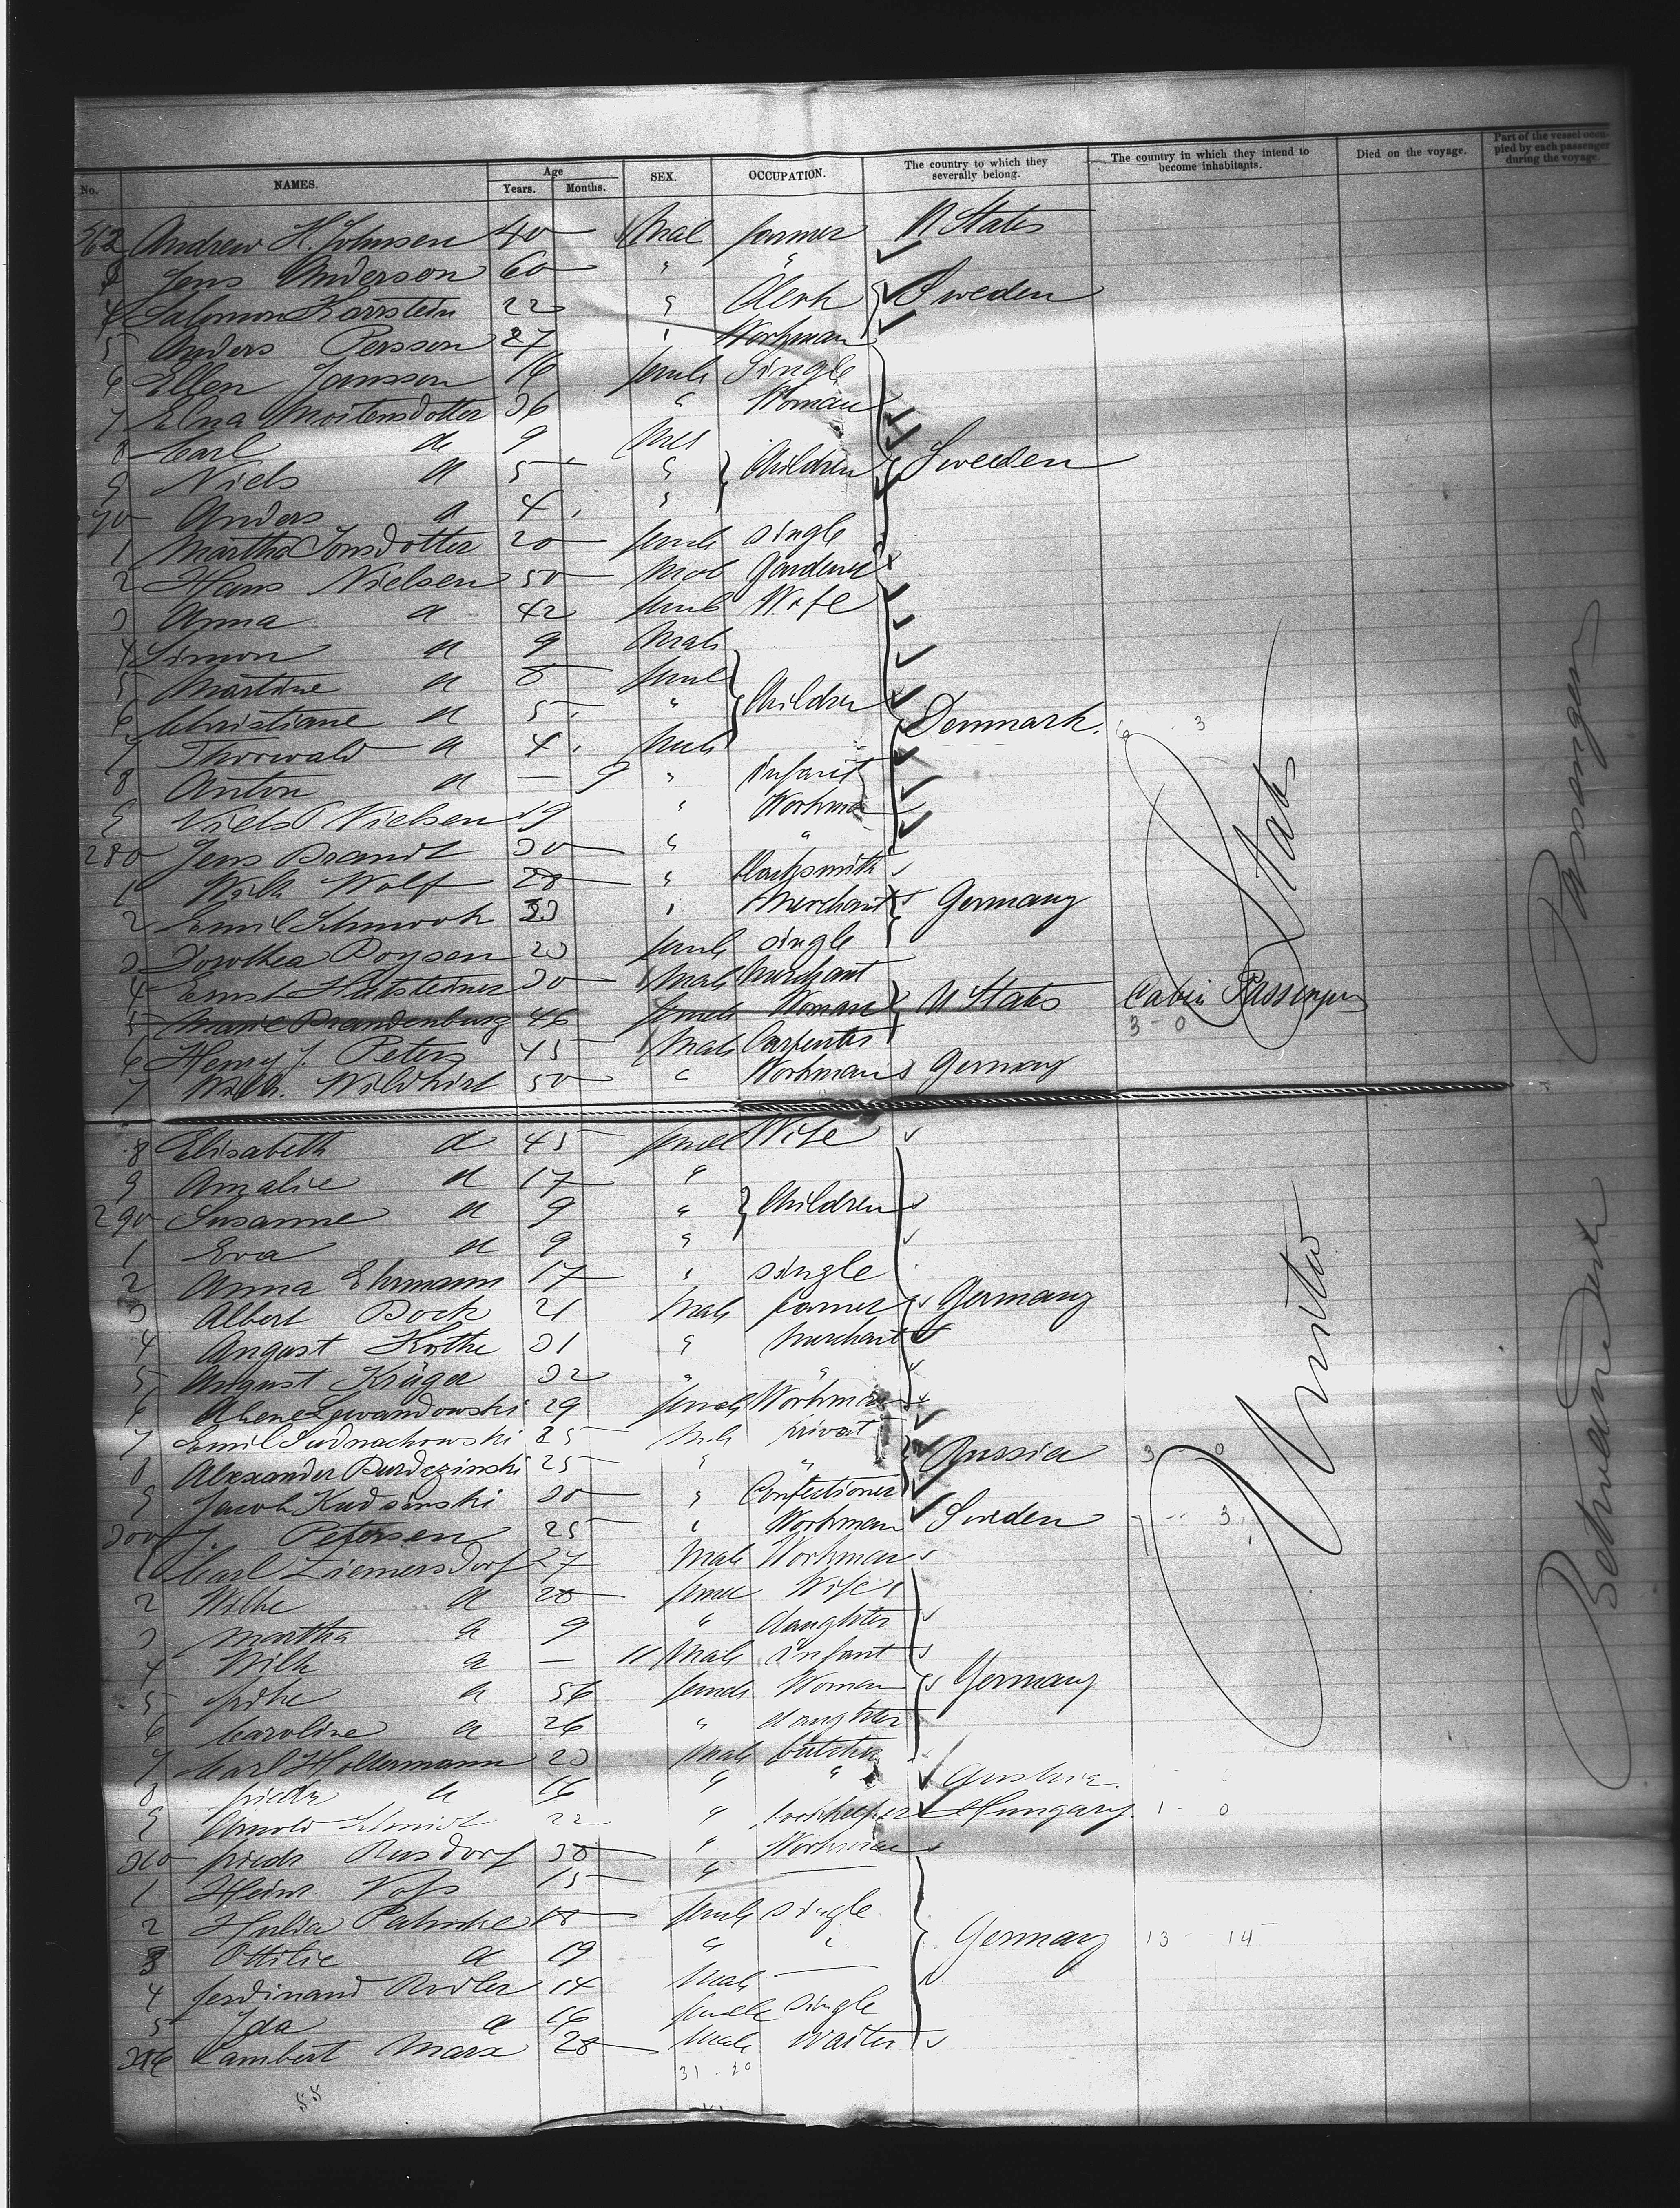 No. NAMES. Age Years. Months. SEX. OCCUPATION. The country to which they severally belong. The country in which they intend to become inhabitants. Died on the voyage. Part of the vessel occupied by each passenger during the voyage.
262 Andrew H. Johnsen 40 Mal farmer U States
3 Jens Anderson 60 " "
4 Salomon Karrstein 22 " Clerk Sweden
5 Anders Persson 27 " Workman
6 Ellen Jansson 16 female Single
7 Elna Mortensdotter 36 " Woman
8 Carl do 9 Male
9 Niels do 5 " Children Sweden
70 Anders do 4 "
1 Martha Jonsdotter 20 female single
2 Hans Nielsen 50 Male Gardener
3 Anna do 42 female Wife
4 Simon do 9 Male
5 Martine do 8 female
6 Christiane do 5 " Children Denmark. 6 3
7 Thorwald do 4 Male
8 Anton do — 9 " infant
9 Niels P Nielsen 19 " Workman
280 Jens Brandt 30 " "
1 Wilh Wolf 28 " blacksmith
2 Emil Schmook 33 " Merchant Germany
3 Dorothea Boysen 23 female single
4 Ernst Hatsteiner 30 Male Merchant
5 Marie Brandenburg 46 female Woman U States Cabin Passenger
3 - 0
6 Henry J. Peters 45 Male Carpenter
7 Wilh. Wildhirt 50 " Workman Germany
States
Passengers
8 Elisabeth do 45 female Wife
9 Amalie do 17 "
290 Susanne do 9 " Children
1 Eva do 9 "
2 Anna Ehrmann 17 " single
3 Albert Bock 21 Male farmer Germany
4 August Kothe 31 " Merchant
5 August Krüger 32 " "
6 Lewandowski 29 female Workman
7 Emil 25 Male privat
8 Alexander Burdezinski 25 " " Russia 3 0
9 Jacob Kudsinski 30 " Confectioner
300 J. Petersen 25 " Workman Sweden 7 3
1 Carl Ziemersdorf 27 Male Workman
2 Wilhe do 28 female Wife
3 Martha do 9 " daughter
4 Wilh do — 11 Male infant
5 fr do 56 female Woman Germany
6 Caroline do 26 " daughter
7 Carl Holtermann 23 Male butcher
8 friedr do 16 " " Austria.
9 Arnold Schmidt 22 " bookkeeper Hungary. 1 0
310 friedr Rusdorf 38 " Workman
1 Heinr. Voss 15 " —
2 Hulda Pahnke 18 female single
3 Ottilie do 19 " " Germany 13 14
4 ferdinand Rodler 14 Male —
5 Ida do 16 female Single
316 Lambert Marx 28 Male waiter
31 - 20
58
United
Betweendeck